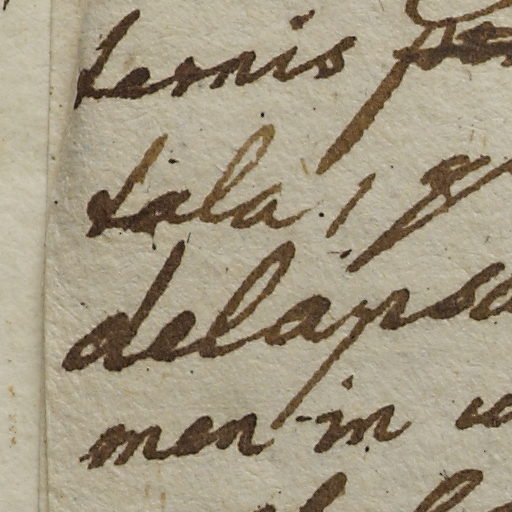 ternis
tala, q
delapsa
men in